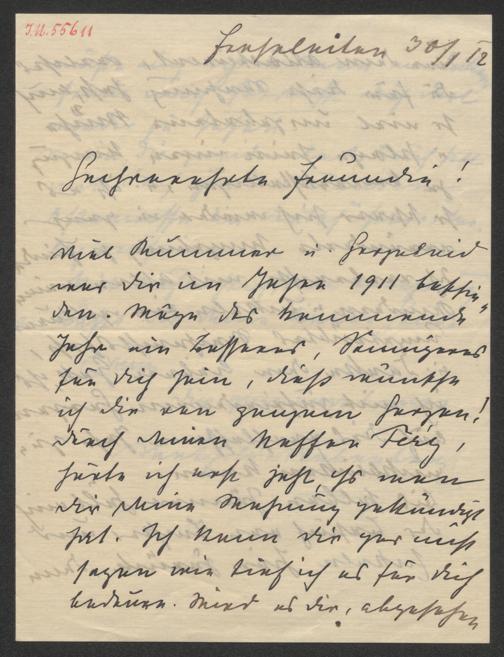 J.N. 55611
30/1 12
Hochverehrte Freundin!
Viel Kummer u. Herzeleid
war dir im Jahre 1911 beschie-
den. Möge das kommende
Jahr ein besseres, Sonnigeres
für dich sein, dieß wünsche
ich dir von ganzem Herzen!
durch deinen Neffen
hörte ich erst jetzt, daß man
dir deine Wohnung gekündigt
hat. Ich kann dir gar nicht
sagen wie tief ich es für dich
bedaure. Wird es dir, abgesehen